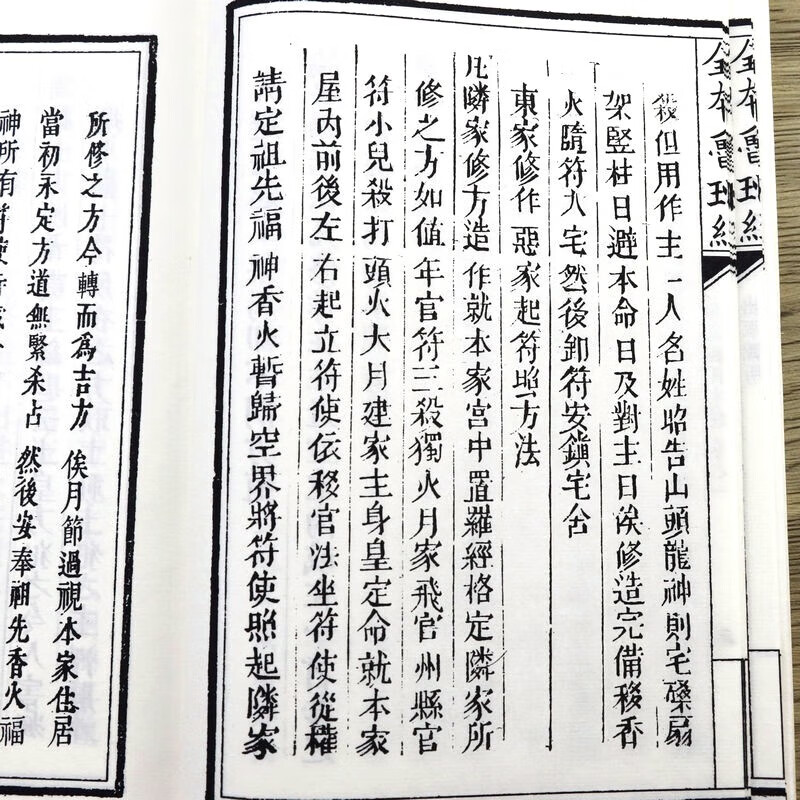 全本魯班經
全本魯班經
殺但用作主一人名姓昭告山頭龍神則宅磉扇
架竪柱日避本命日及對主日俟修造完備移香
火隨符入宅然後卸符安鎮宅舍
東家修作惡家起符照方法
凡隣家修方造作就本家宮中置羅經格定隣家所
修之方如值年官符三殺獨火月家飛官州縣官
符小兒殺打頭火大月建家主身皇定命就本家
屋內前後左右起立符使依移官法坐符使從權
請定祖先福神香火暫歸空界將符使照起隣家
所修之方令轉而為吉方 俟月節過視本家住居
當初永定方道無緊杀占 然後安奉祖先香火福
神所有符使